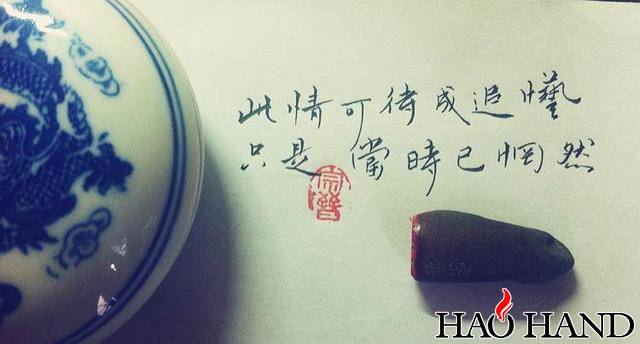 此情可待成追
只是儅時已惘然
HAO HAND